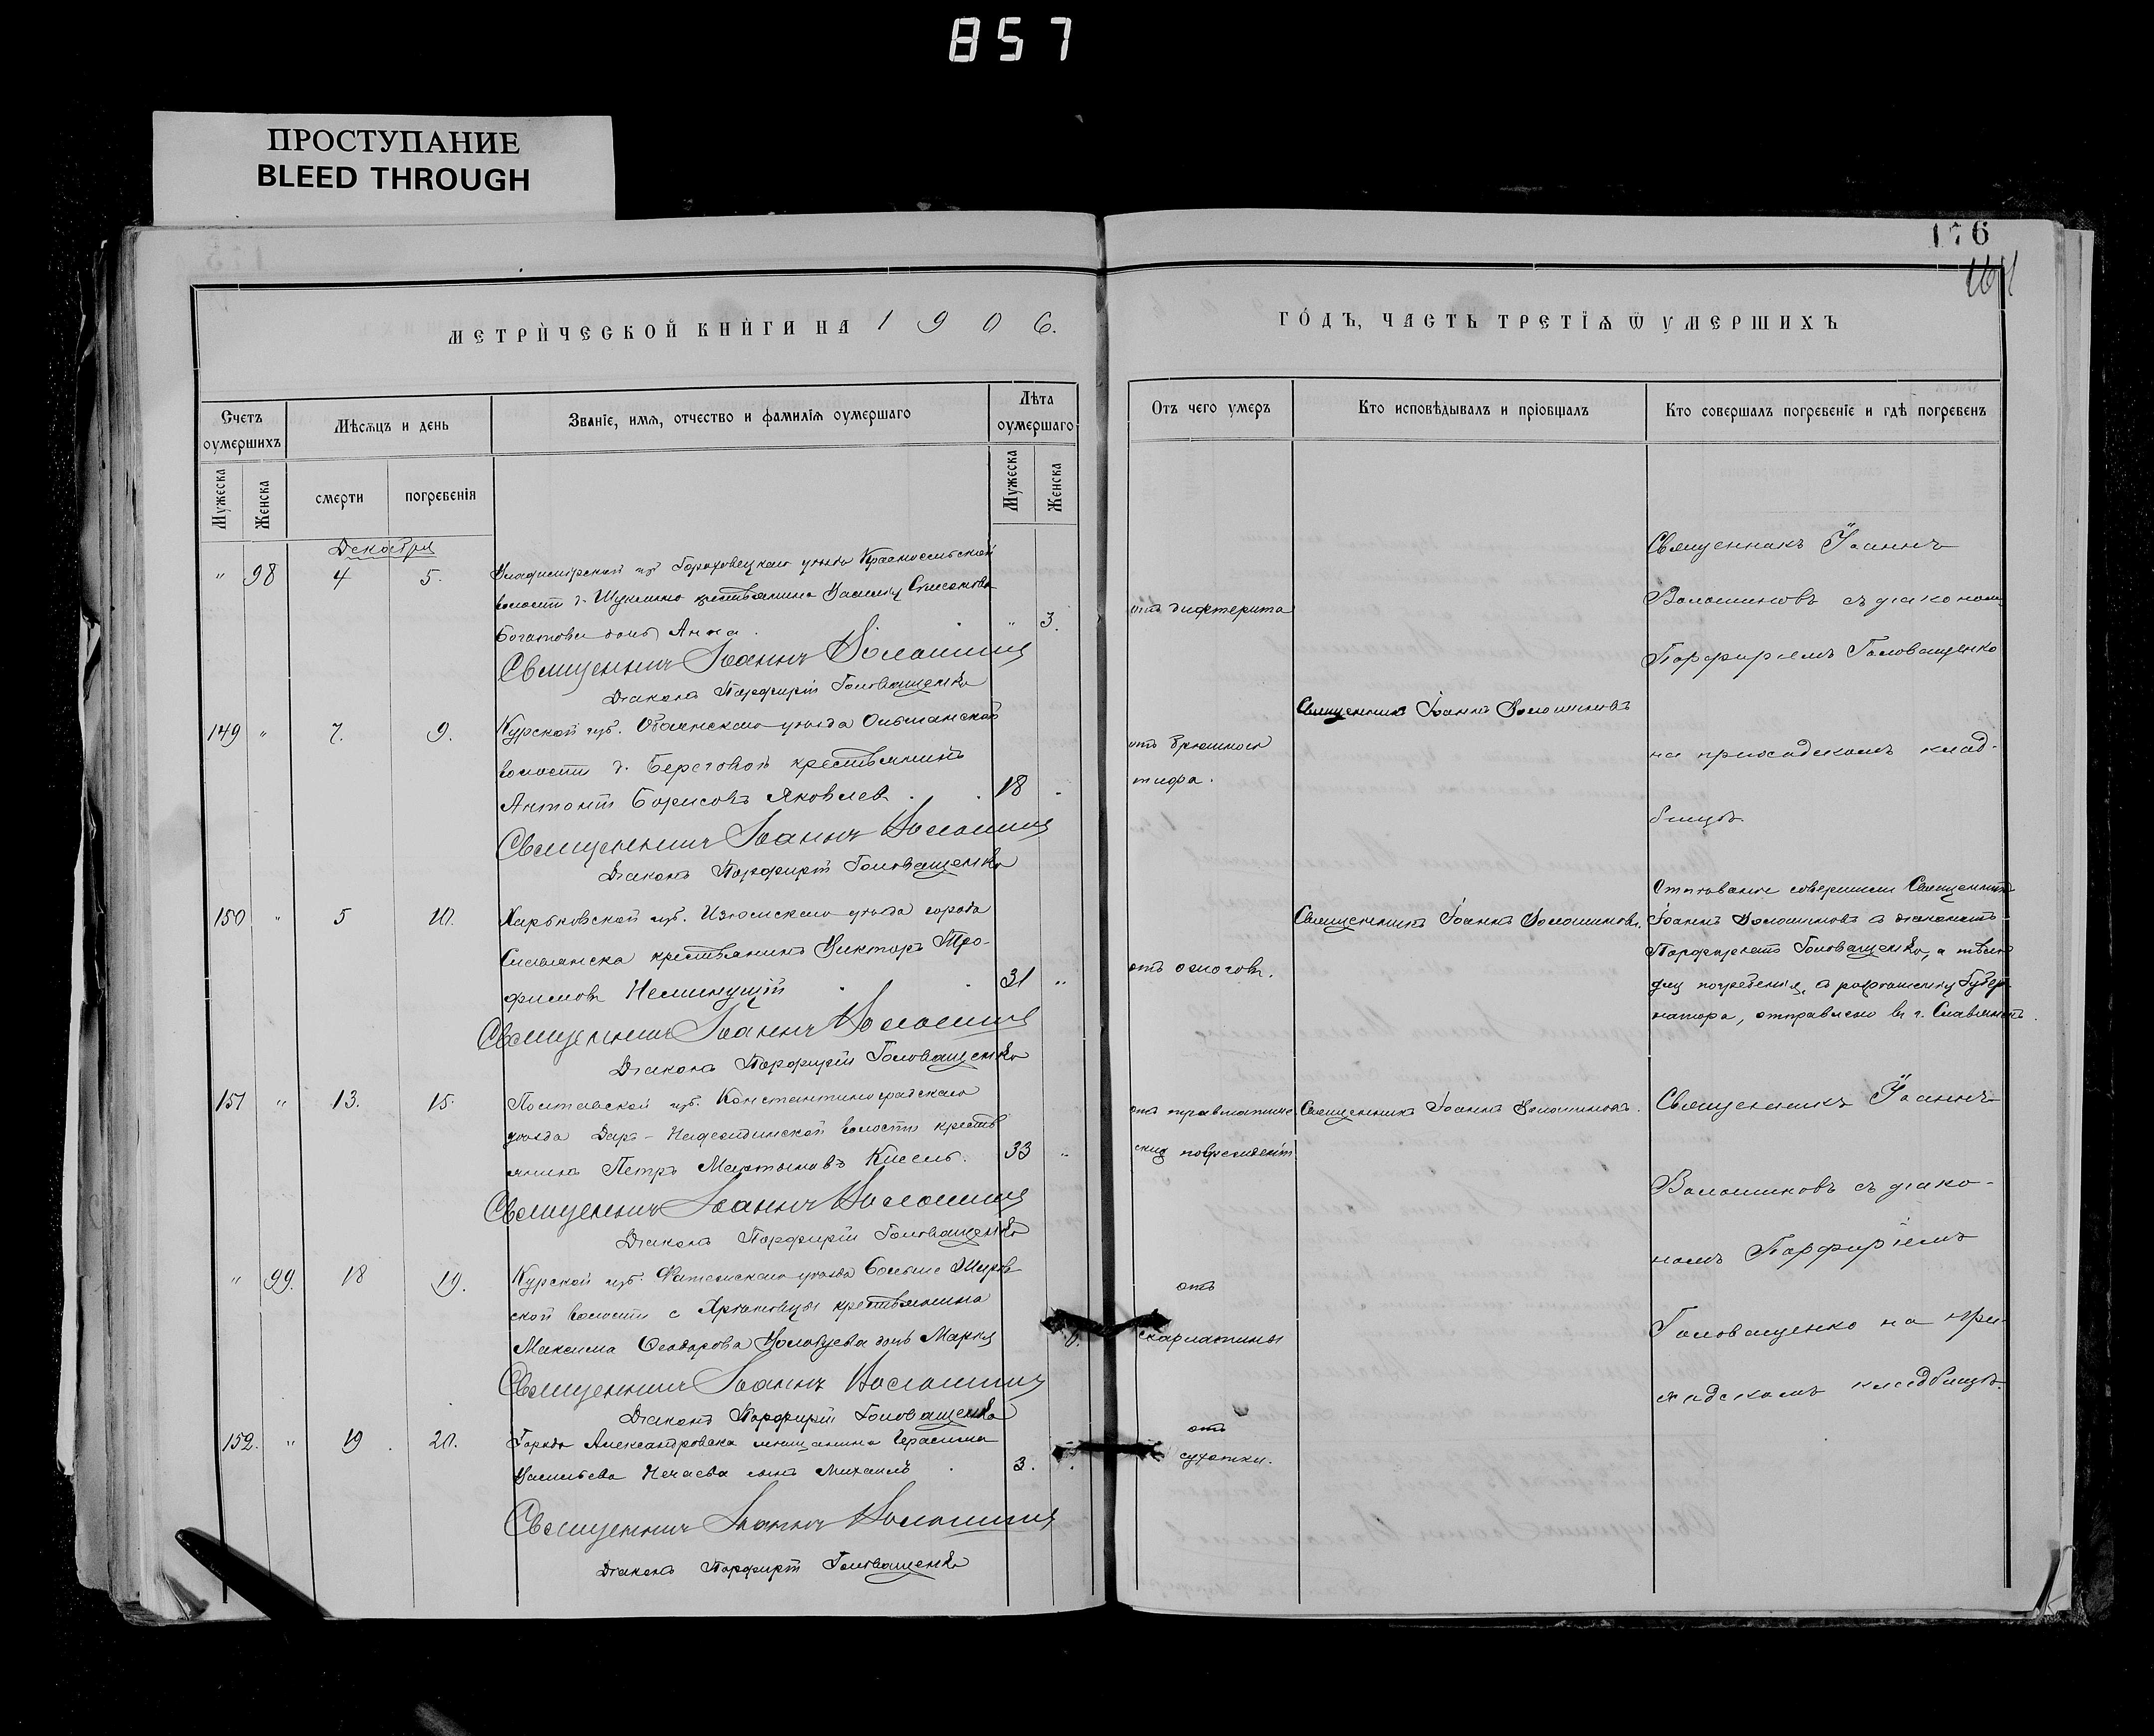 857
ПРОСТУПАНИЕ
BLEED THROUGH
176
МЕТРИЧЕСКОЙ КНИГИ НА 1906.
ГОДЪ, ЧАСТЬ ТРЕТІЯ Ѿ УМЕРШИХЪ
Счетъ оумершихъ
Мѣсяцъ и день
Званіе, имя, отчество и фамилія оумершаго
Лѣта оумершаго
Отъ чего умеръ
Кто исповѣдывалъ и пріобщалъ
Кто совершалъ погребеніе и гдѣ погребенъ
Мужеска
Женска
смерти
погребенія
Мужеска
Женска
Декабря
" 98 4 5. Владимірской губ. Гороховецкаго уѣзда Красносельской
волости д. крестьянина Василія Симонова
Богатова дочь Анна. " 3.
отъ дифтерита
Священникъ Іоаннъ
Волошиновъ съ діакономъ
Порфиріемъ Головащенко
на приходскомъ клад-
бищѣ.
Священникъ Іоаннъ Волошинов
Діаконъ Порфирій Головащенко
149 " 7. 9. Курской губ. Обоянскаго уѣзда Ольшанской
волости д. Береговой крестьянинъ
Антоній Борисовъ Яковлев. 18
отъ брюшного
тифа.
Священникъ Іоаннъ Волошиновъ
Священникъ Іоаннъ Волошинов
Діаконъ Порфирій Головащенко
150 " 5 10. Харьковской губ. Изюмскаго уѣзда города
Славянска крестьянинъ Викторъ Тро-
фимовъ Неминущій 31 "
отъ ожоговъ.
Священникъ Іоаннъ Волошиновъ.
Отпѣваніе совершили Священникъ
Іоаннъ Волошиновъ съ діакономъ
Порфиріемъ Головащенко, а тѣло
для погребенія, с разрѣшенія Губер-
натора, отправлено въ г. Славянскъ.
Священникъ Іоаннъ Волошинов
Діаконъ Порфирій Головащенко
151 " 13. 15. Полтавской губ. Константиноградскаго
уѣзда Дар-Надеждинской волости кресть
янинъ Петръ Мартыновъ Кисель. 33 "
отъ травматиче
скихъ поврежденій
Священникъ Іоаннъ Волошиновъ.
Священникъ Іоаннъ
Волошиновъ съ діако-
номъ Порфиріемъ
Головащенко на при-
ходскомъ кладбищѣ.
Священникъ Іоаннъ Волошинов
Діаконъ Порфирій Головащенко
" 99. 18 19. Курской губ. Фатежскаго уѣзда Больше Жиров
ской волости с крестьянина
Максима Ѳеодорова дочь Марія
отъ
скарлатины
Священникъ Іоаннъ Волошинов
Діаконъ Порфирій Головащенко
152. " 19. 20. Города Александровска мѣщанина Герасима
Васильева Нечаева сынъ Михаилъ 3.
отъ
сухотки.
Священникъ Іоаннъ Волошинов
Діаконъ Порфирій Головащенко